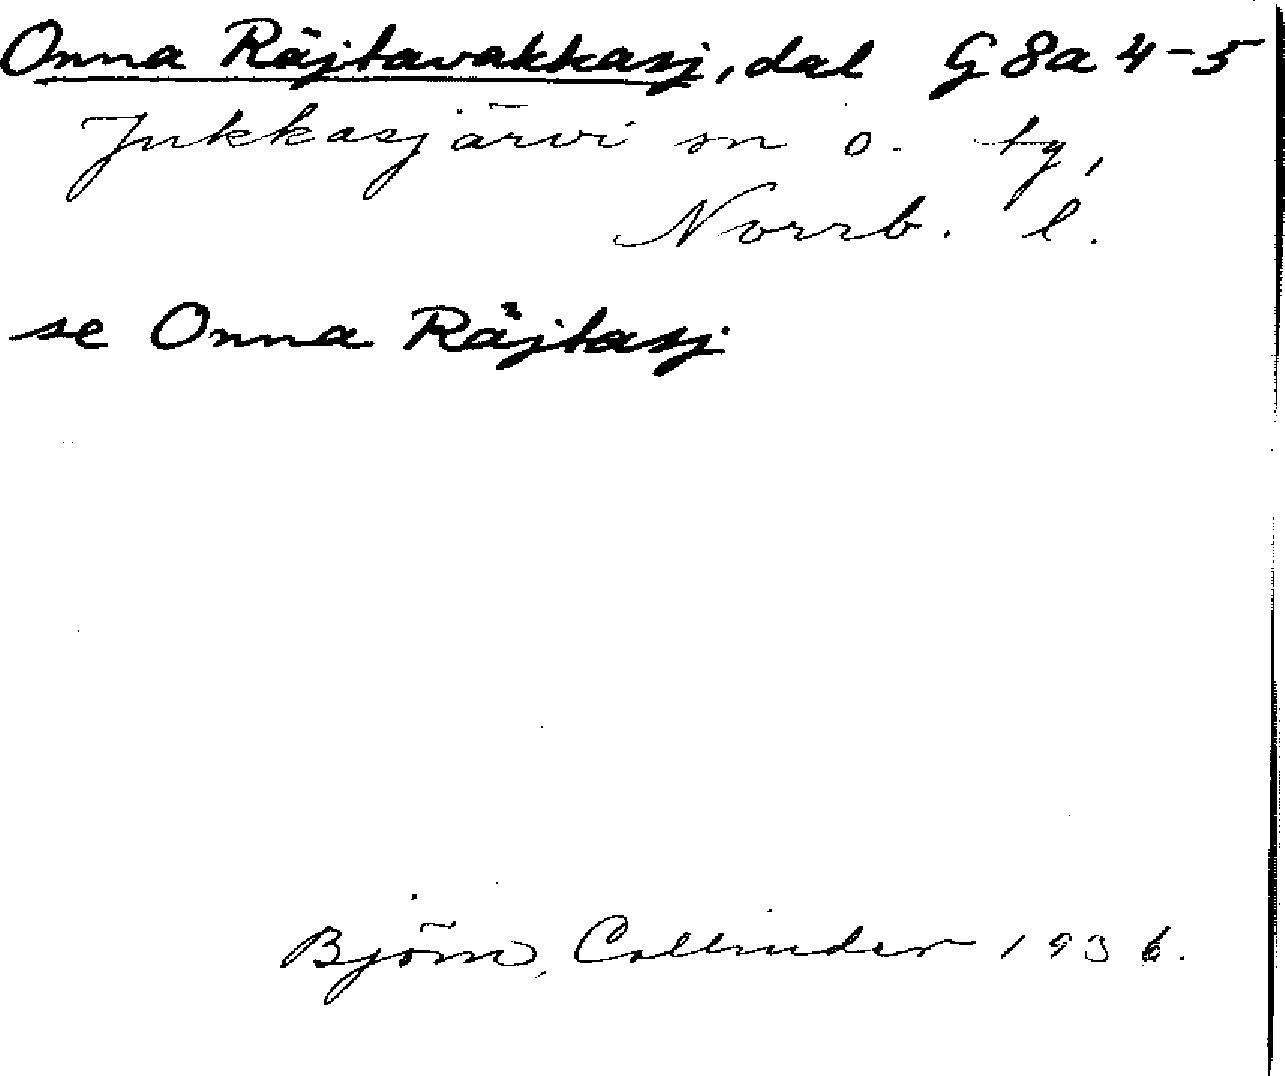 Onna Räjtavakkasj, dal G8a 4-5
Jukkasjärvi sn o. tg,
Norrb. l.
se Onna Räjtasj
Björn Collinder 1936.